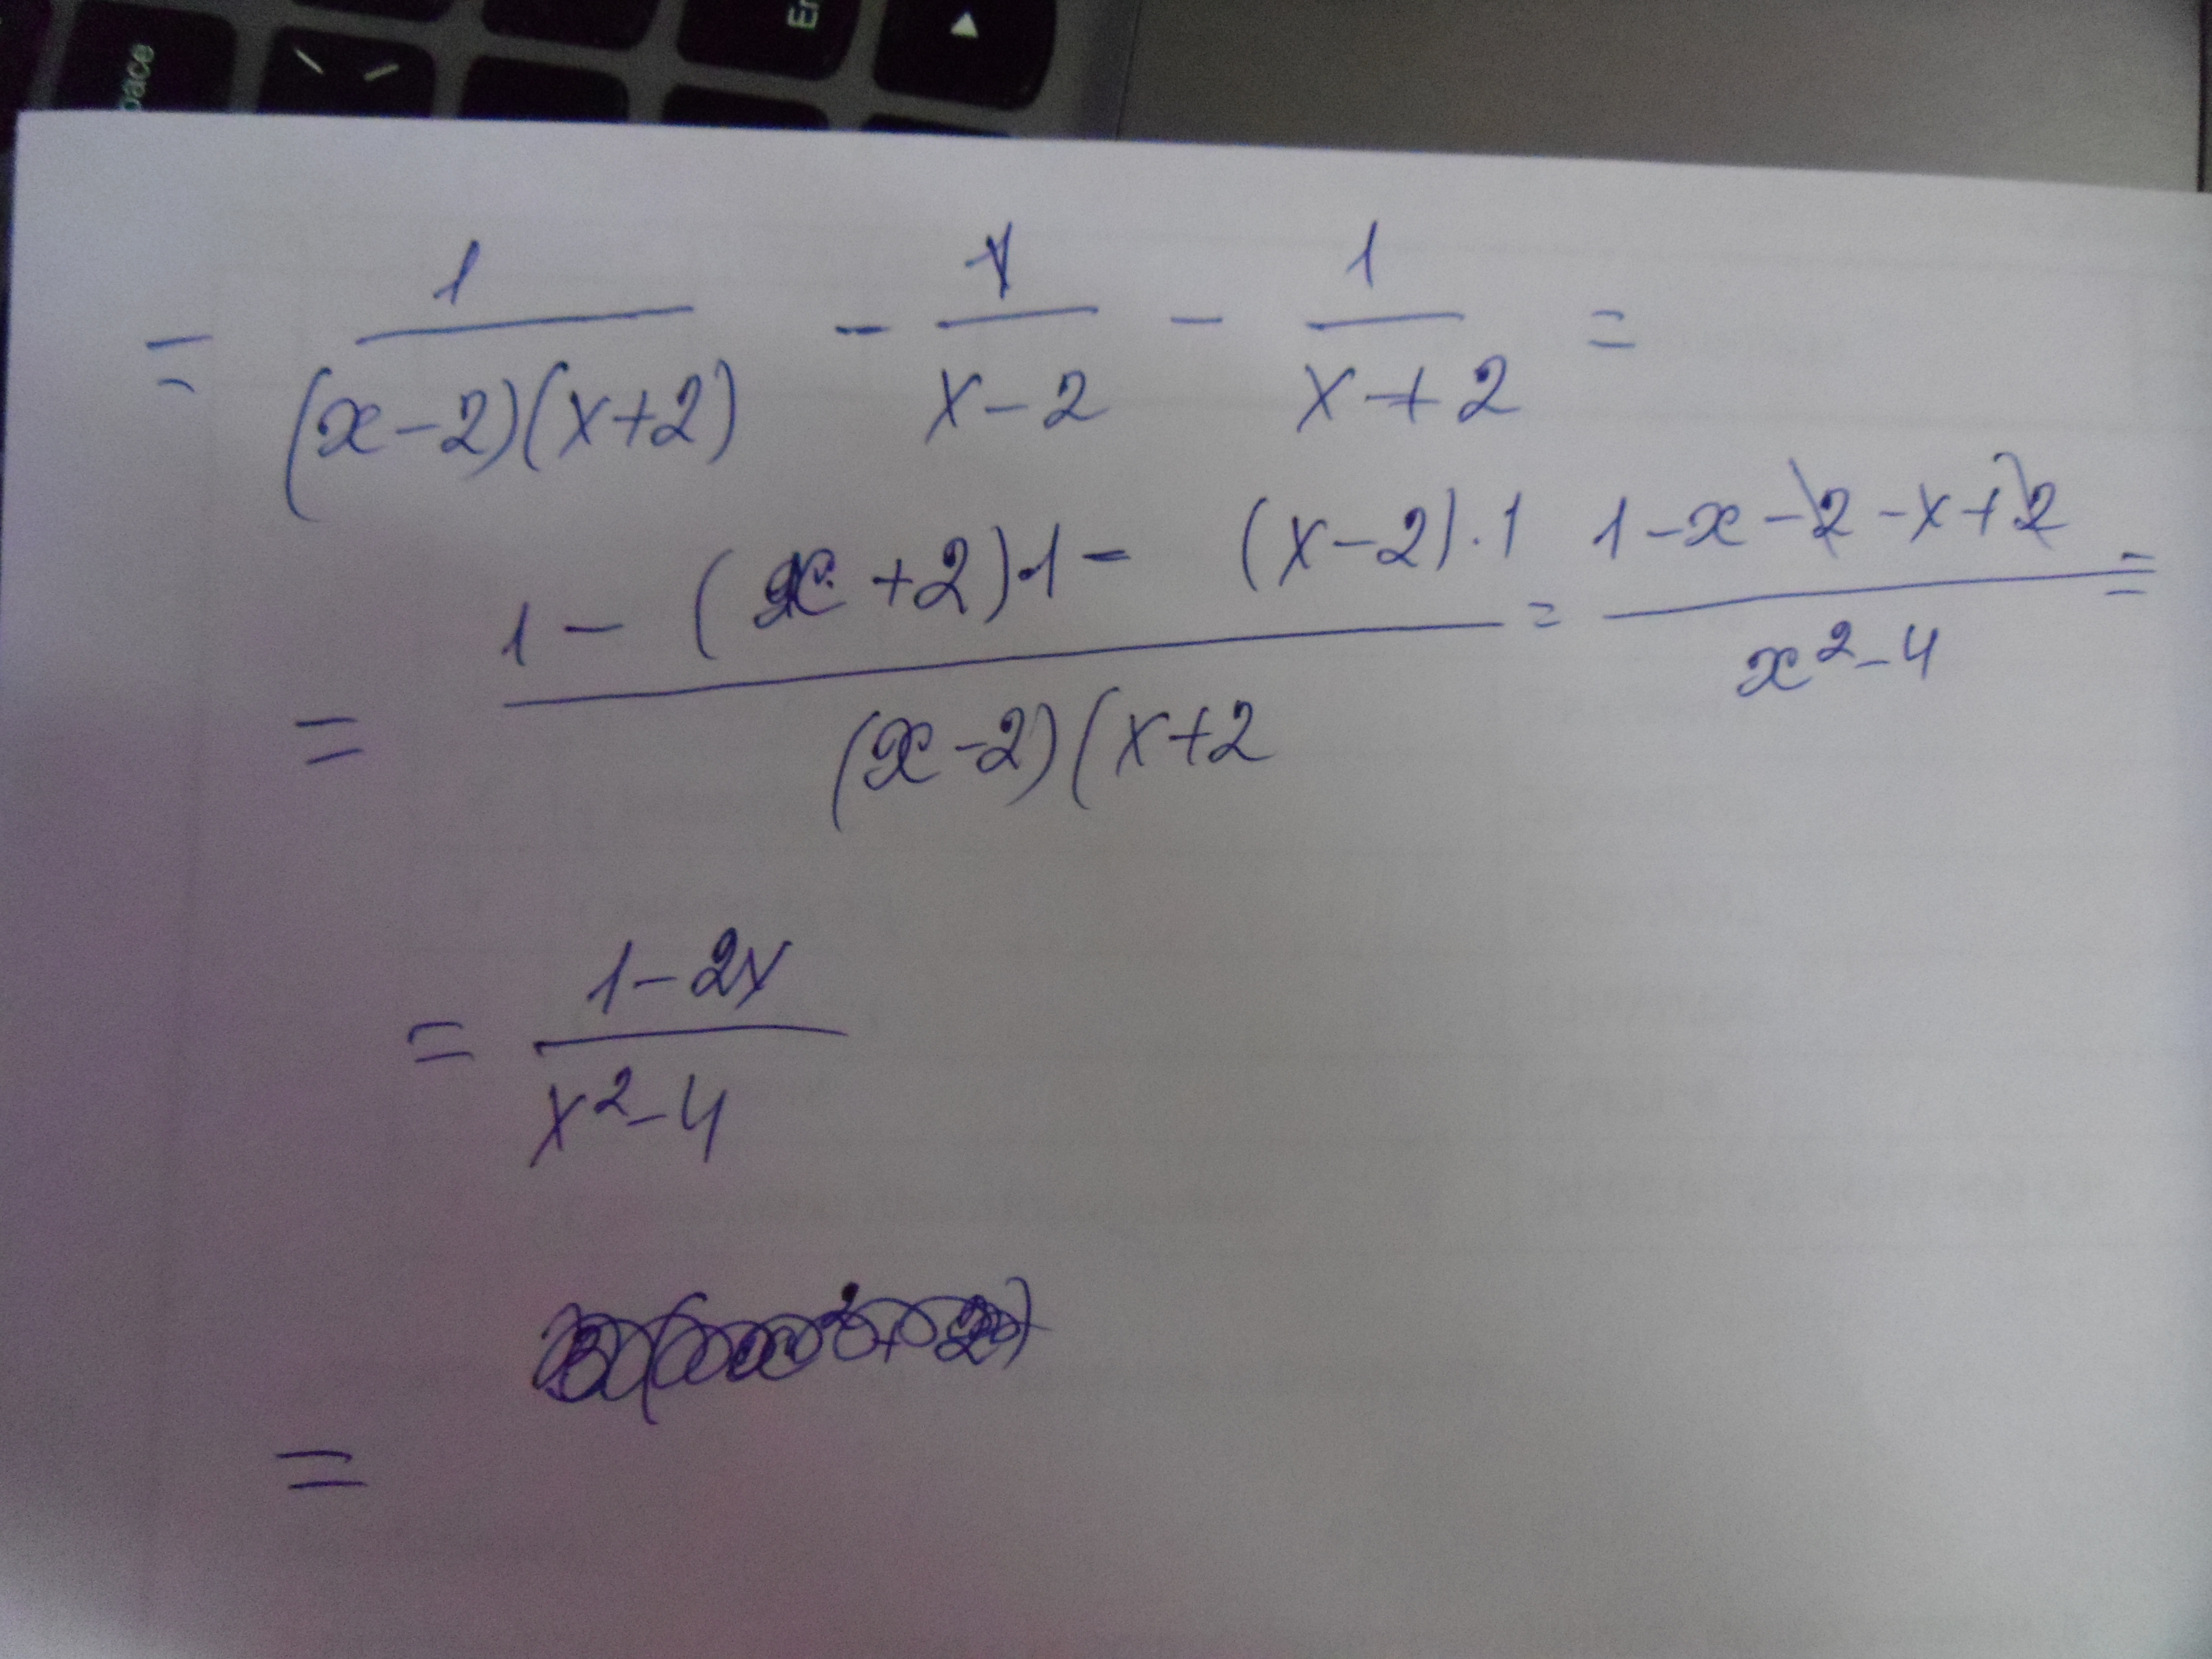 = 1/((x-2)(x+2)) - 1/(x-2) - 1/(x+2) =
= (1 - (x+2)·1 - (x-2)·1)/((x-2)(x+2) = (1-x-2-x+2)/(x²-4) =
= (1-2x)/(x²-4)
=